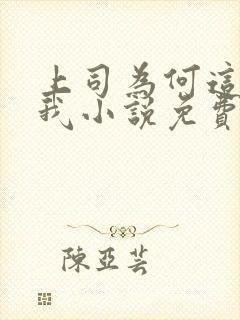 上司為何這
我小說免費
陳亞芸